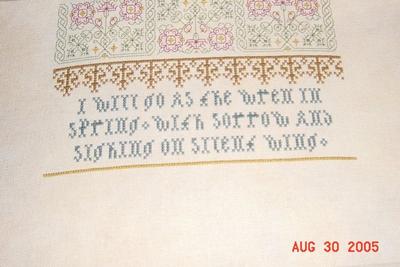 I will go as the wren in
spring · with sorrow and
sighing on silent wing ·
AUG 30 2005